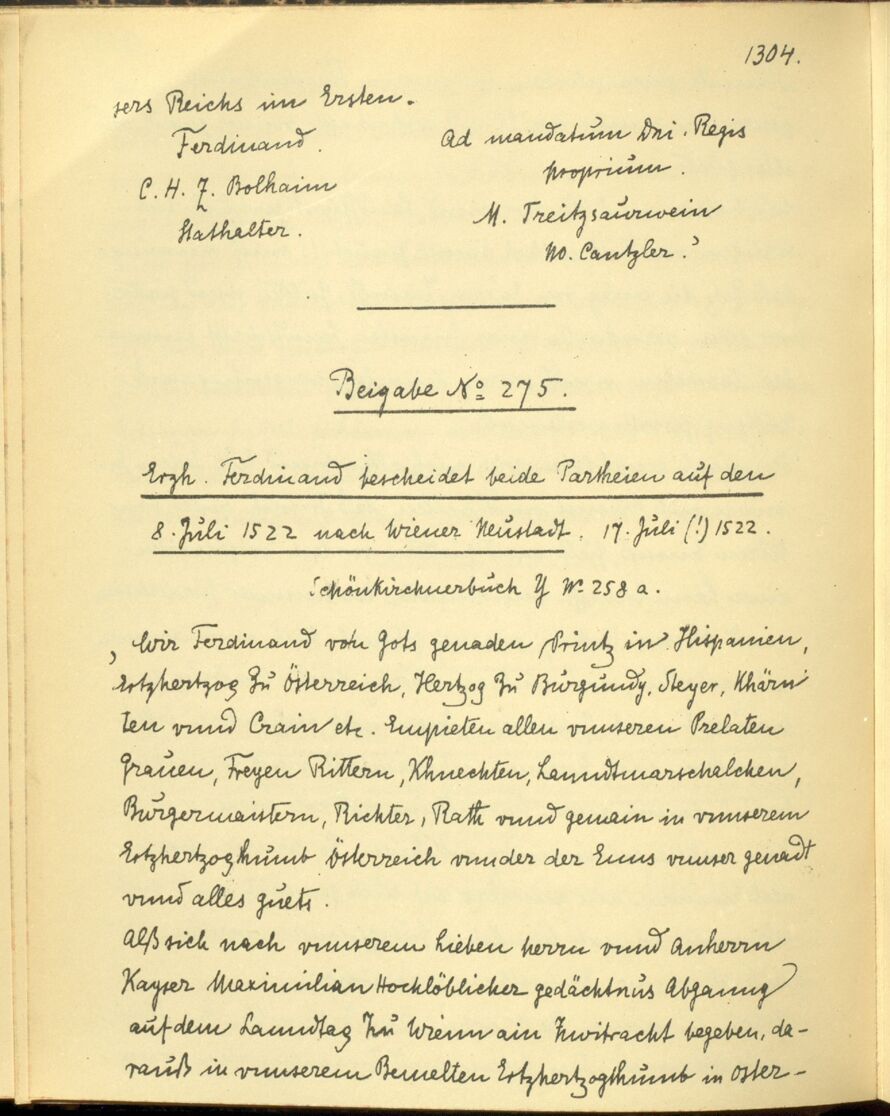 1304.
sers Reichs im Ersten.
Ferdinand. Ad mandatum Dni. Regis
proprium.
C. H. Z. Bolhaim M. Treitzsaurwein
Stathalter. No. Cantzler.
Beigabe No 275.
Erzh. Ferdinand bescheidet beide Partheien auf den
8. Juli 1522 nach Wiener Neustadt. 17. Juli (!) 1522.
Schönkirchnerbuch Y No 258 a.
„Wir Ferdinand von Gots genaden Printz in Hispanien,
Ertzhertzog Zu Österreich, Hertzog Zu Burgundy, Steyer, Khärn
ten vnnd Crain etc. Empieten allen vnnseren Prelaten
Grauen, Freyen Rittern, Khnechten, Lanndtmarschalchen,
Burgermaistern, Richter, Rath vnnd gemain in vnnserem
Ertzhertzogthumb Österreich vnnder der Enns vnnser genadt
vnnd alles guets.
Alß sich nach vnnserem lieben herrn vnnd Anherrn
Kayser Maximilian Hochlöblicher gedächtnus Abganng
auf dem Lanndtag Zu Wienn ain Zwitracht begeben, da-
rauß in vnnserem Bemelten Ertzhertzogthumb in Oster-